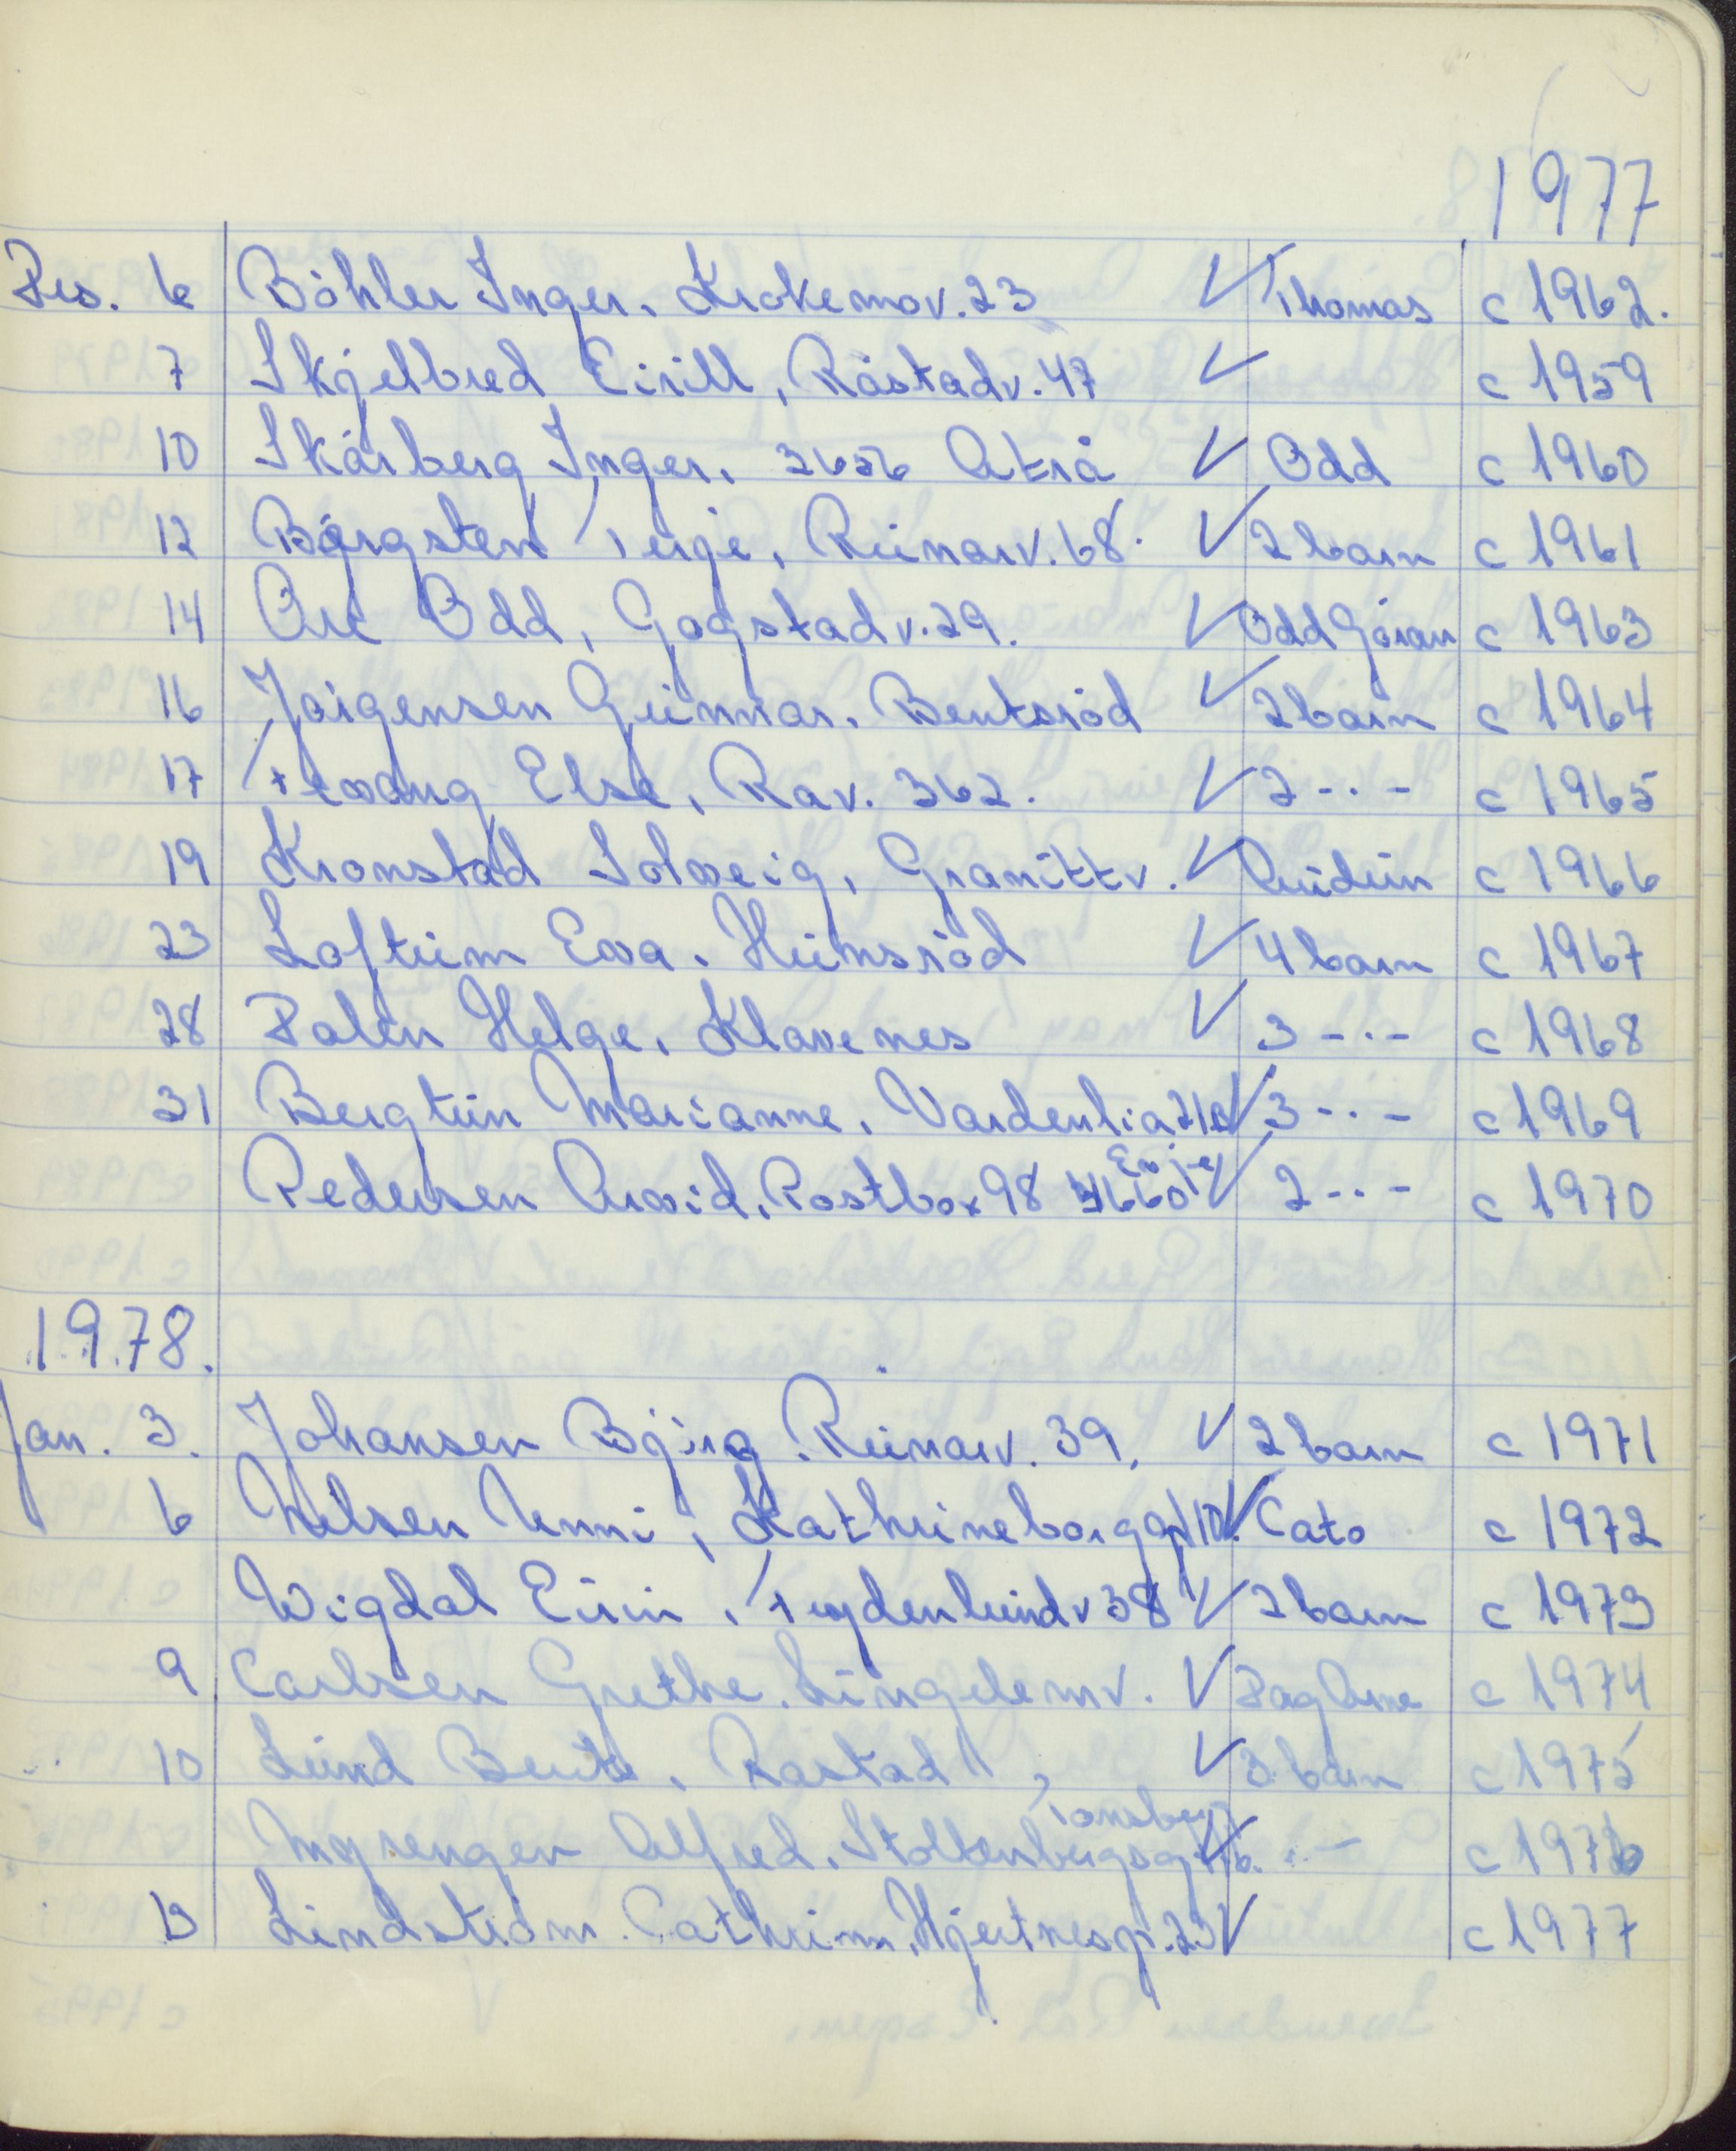 1977
Des. 6 Böhler Inger. Krokemov. 23 ✓ Thomas c 1962.
7 Skjelbred Eirill, Råstadv. 47 ✓ c 1959
10 Skårberg Inger. 3656 Atrå ✓ Odd c 1960
12 Børgsten Terje, Runarv. 68. ✓ 2 barn c 1961
14 Are Odd, Gogstadv. 29. ✓ Odd Gøran c 1963
16 Jørgensen Gunnar. Bentsrød ✓ 2 barn c 1964
17 Tevang Else, Rav. 362. ✓ 2 -"- c 1965
19 Kronstad Solveig, Granittv. ✓ Audun c 1966
23 Loftum Eva. Hunsrød ✓ 4 barn c 1967
28 Dalen Helge. Klavenes ✓ 3 -"- c 1968
31 Bergtun Marianne. Vardenlia ✓ 3 -"- c 1969
Pedersen Arvid. Postbox 98 3660 ✓ 2 -"- c 1970
1978.
Jan. 3. Johansen Bjørg. Runarv. 39. ✓ 2 barn c 1971
6 Nilsen Unni, Kathrineborggt 10. ✓ Cato c 1972
Wigdal Eirin. Frydenlundv 38 ✓ 2 barn c 1973
9 Carlsen Grethe. Lingelemv. ✓ Dag Arne c 1974
10 Lund Bente. Rastad ✓ 3 barn c 1975
Tønsberg
Myrengen Alfred. Stoltenbergsgt ✓ -"- c 1976
13 Lindstrøm Cathrin. Hjertnesgt. 23 ✓ c 1977